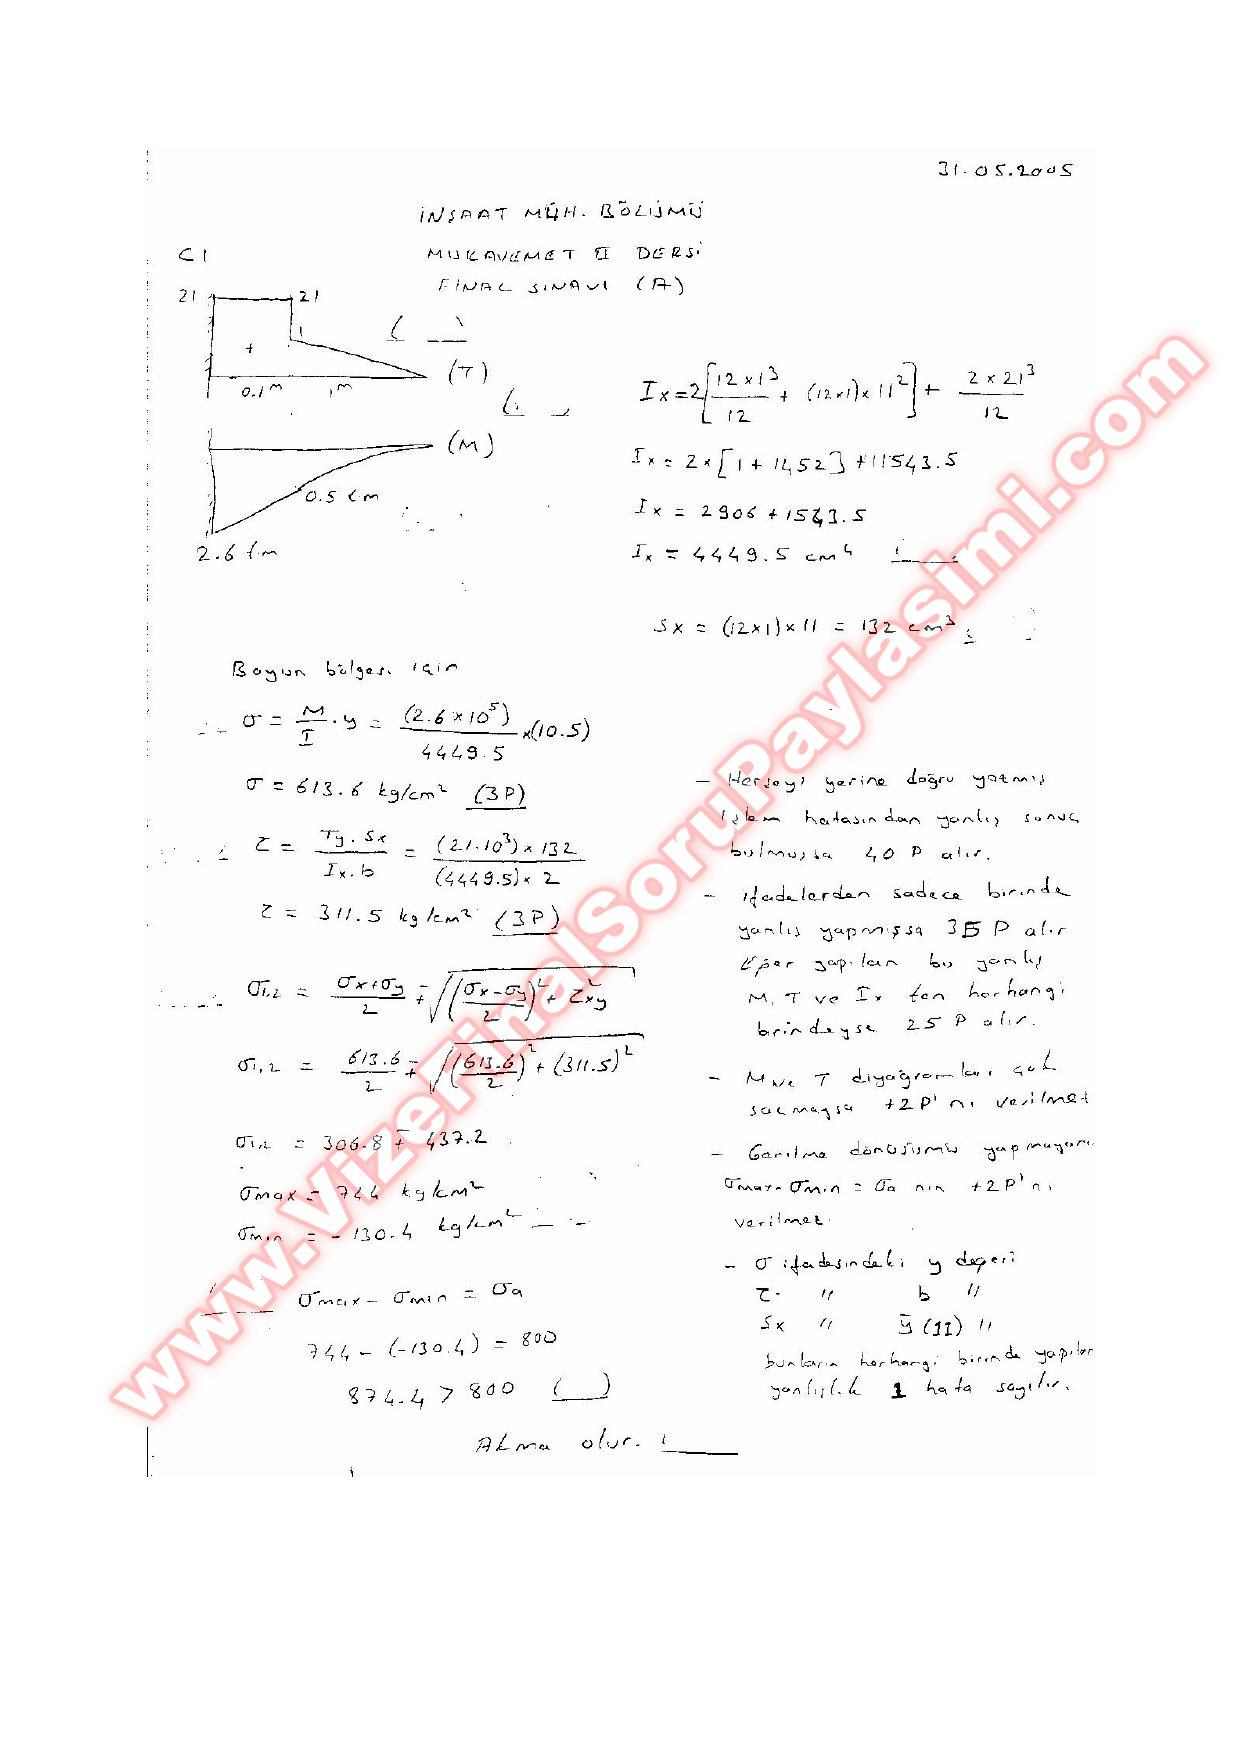 31.05.2005
İNŞAAT MÜH. BÖLÜMÜ
C1
MUKAVEMET II DERSİ
FİNAL SINAVI (A)
21 21
+
(T)
0.1m 1m
(M)
0.5 tm
2.6 tm
Ix=2[12x1³/12 + (12x1)x11²] + 2x21³/12
Ix = 2x[1 + 1452] + 1543.5
Ix = 2906 + 1543.5
Ix = 4449.5 cm⁴
Sx = (12x1)x11 = 132 cm³
Boyun bölgesi için
σ = M/I . y = (2.6x10⁵)/4449.5 x(10.5)
σ = 613.6 kg/cm² (3P)
τ = Ty.Sx/Ix.b = (21.10³)x132/(4449.5)x2
τ = 311.5 kg/cm² (3P)
σ1,2 = σx+σy/2 ∓ √((σx-σy/2)² + τ²xy
σ1,2 = 613.6/2 ∓ √(613.6/2)² + (311.5)²
σ1,2 = 306.8 ∓ 437.2
σmax = 744 kg/cm²
σmin = -130.4 kg/cm²
σmax - σmin = σa
744 - (-130.4) = 800
874.4 > 800
ALma olur.
- Herşeyi yerine doğru yazmış
işlem hatasından yanlış sonuç
bulmuşsa 40 P alır.
- ifadelerden sadece birinde
yanlış yapmışsa 35 P alır
Eğer yapılan bu yanlış
M, T ve Ix ten herhangi
birindeyse 25 P alır.
- M ve T diyagramları çok
saçmaysa +2P'nı verilmez
- Gerilme dönüşümü yapmayana
σmax-σmin = σa nın +2P'nı
verilmez.
- σ ifadesindeki y değeri
τ " b "
Sx " ȳ (11) "
bunların herhangi birinde yapılan
yanlışlık 1 hata sayılır.
www.VizeFinalSoruPaylasimi.com